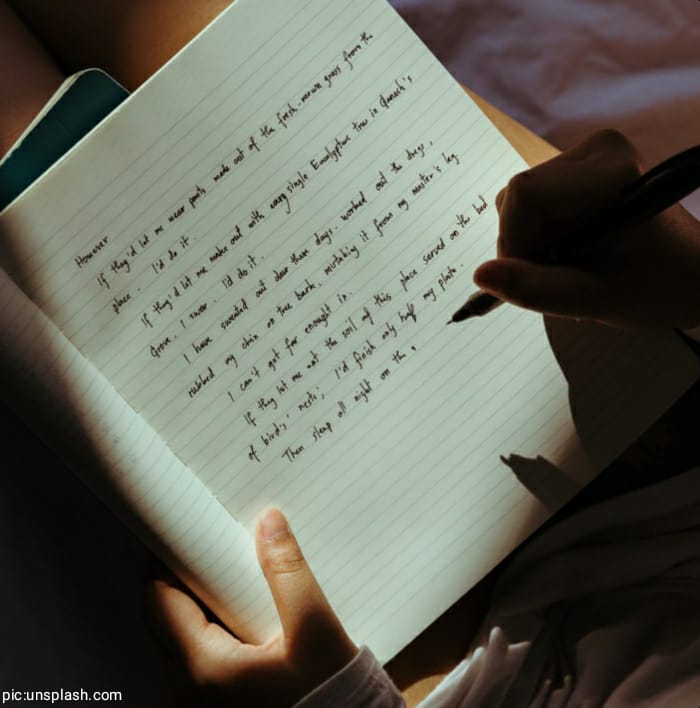 However
If they'd let me wear pants made out of the fresh-mown grass from the
place. I'd do it.
If they'd let me make out with every single Eucalyptus tree in
Grove, I swear. I'd do it.
I have sweated out dear these days, worked out the dregs,
rubbed my chin on tree bark, mistaking it from my master's leg
I can't get far enought in.
If they let me eat the soil of this place served on the bed
of birds' nests; I'd finish only half my plate.
Then sleep all night on the
pic:unsplash.com